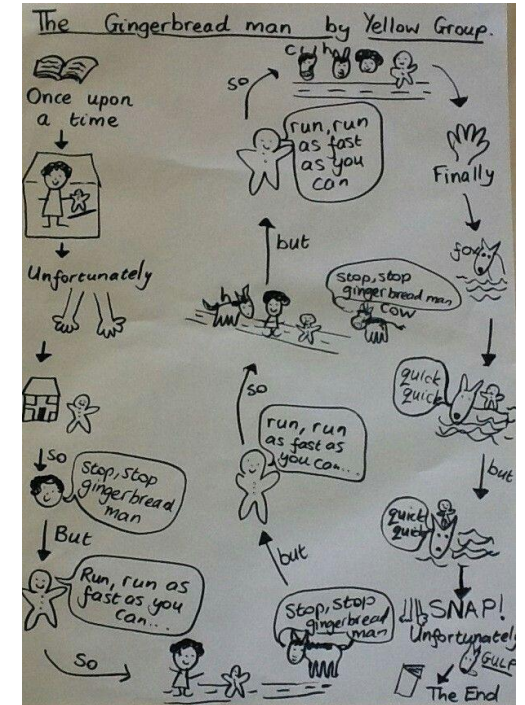 The Gingerbread man by Yellow Group.
Once upon
a time
Unfortunately
so
Stop, stop
gingerbread
man
But
Run, run as
fast as you
can...
So
Stop, Stop
gingerbread
man
but
run, run
as fast as
you can...
so
h
stop, stop
gingerbread man
cow
but
run, run
as fast
as you
can
so
c
h
Finally
fox
quick
quick
but
quick
quick
SNAP!
Unfortunately
GULP
The End